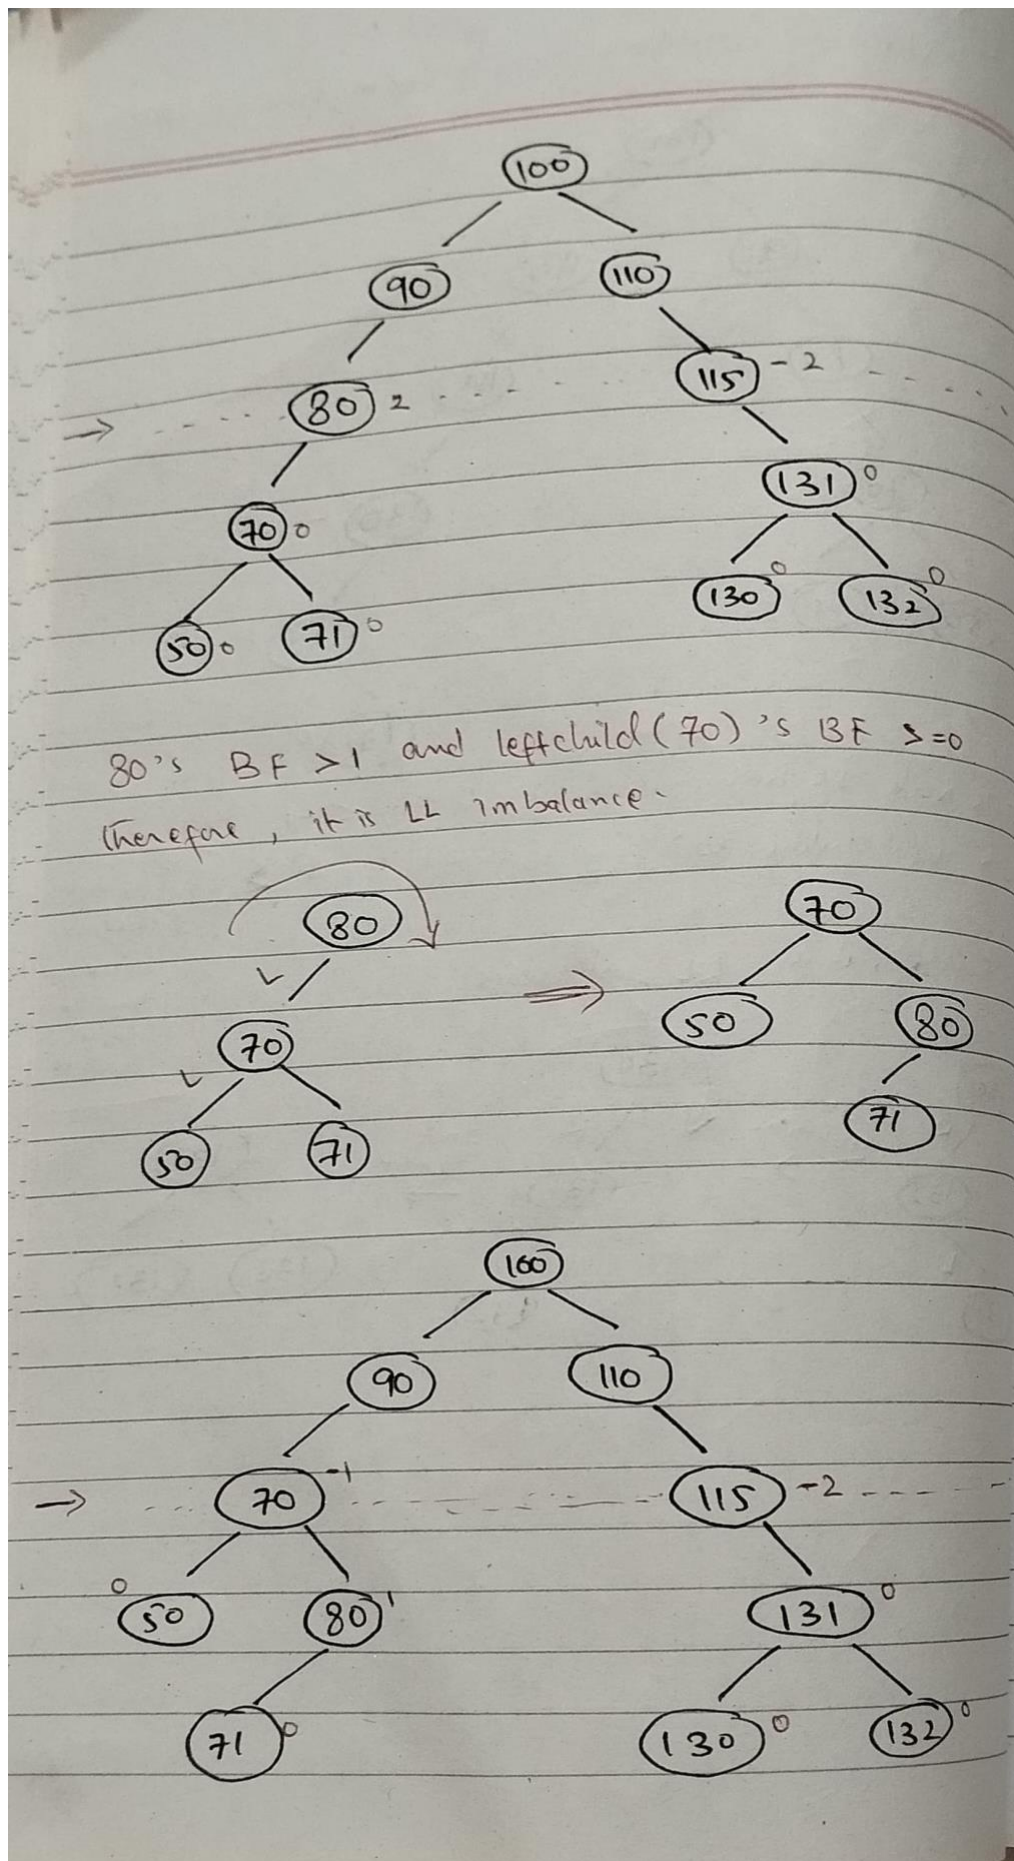 100
90 110
→ 80 2 115 -2
70 0 131 0
50 0 71 0 130 0 132 0
80's BF >1 and leftchild(70)'s BF >=0
Therefore, it is LL imbalance.
80 70
L
70 50 80
L
50 71 71
100
90 110
→ 70 -1 115 -2
0 50 80 1 131 0
71 0 130 0 132 0